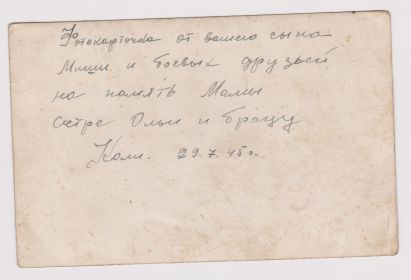 Фотокарточка от вашего сына
Миши и боевых друзей
на память Мамы
сестре Ольи и брату
Коли. 29.7.45 г.